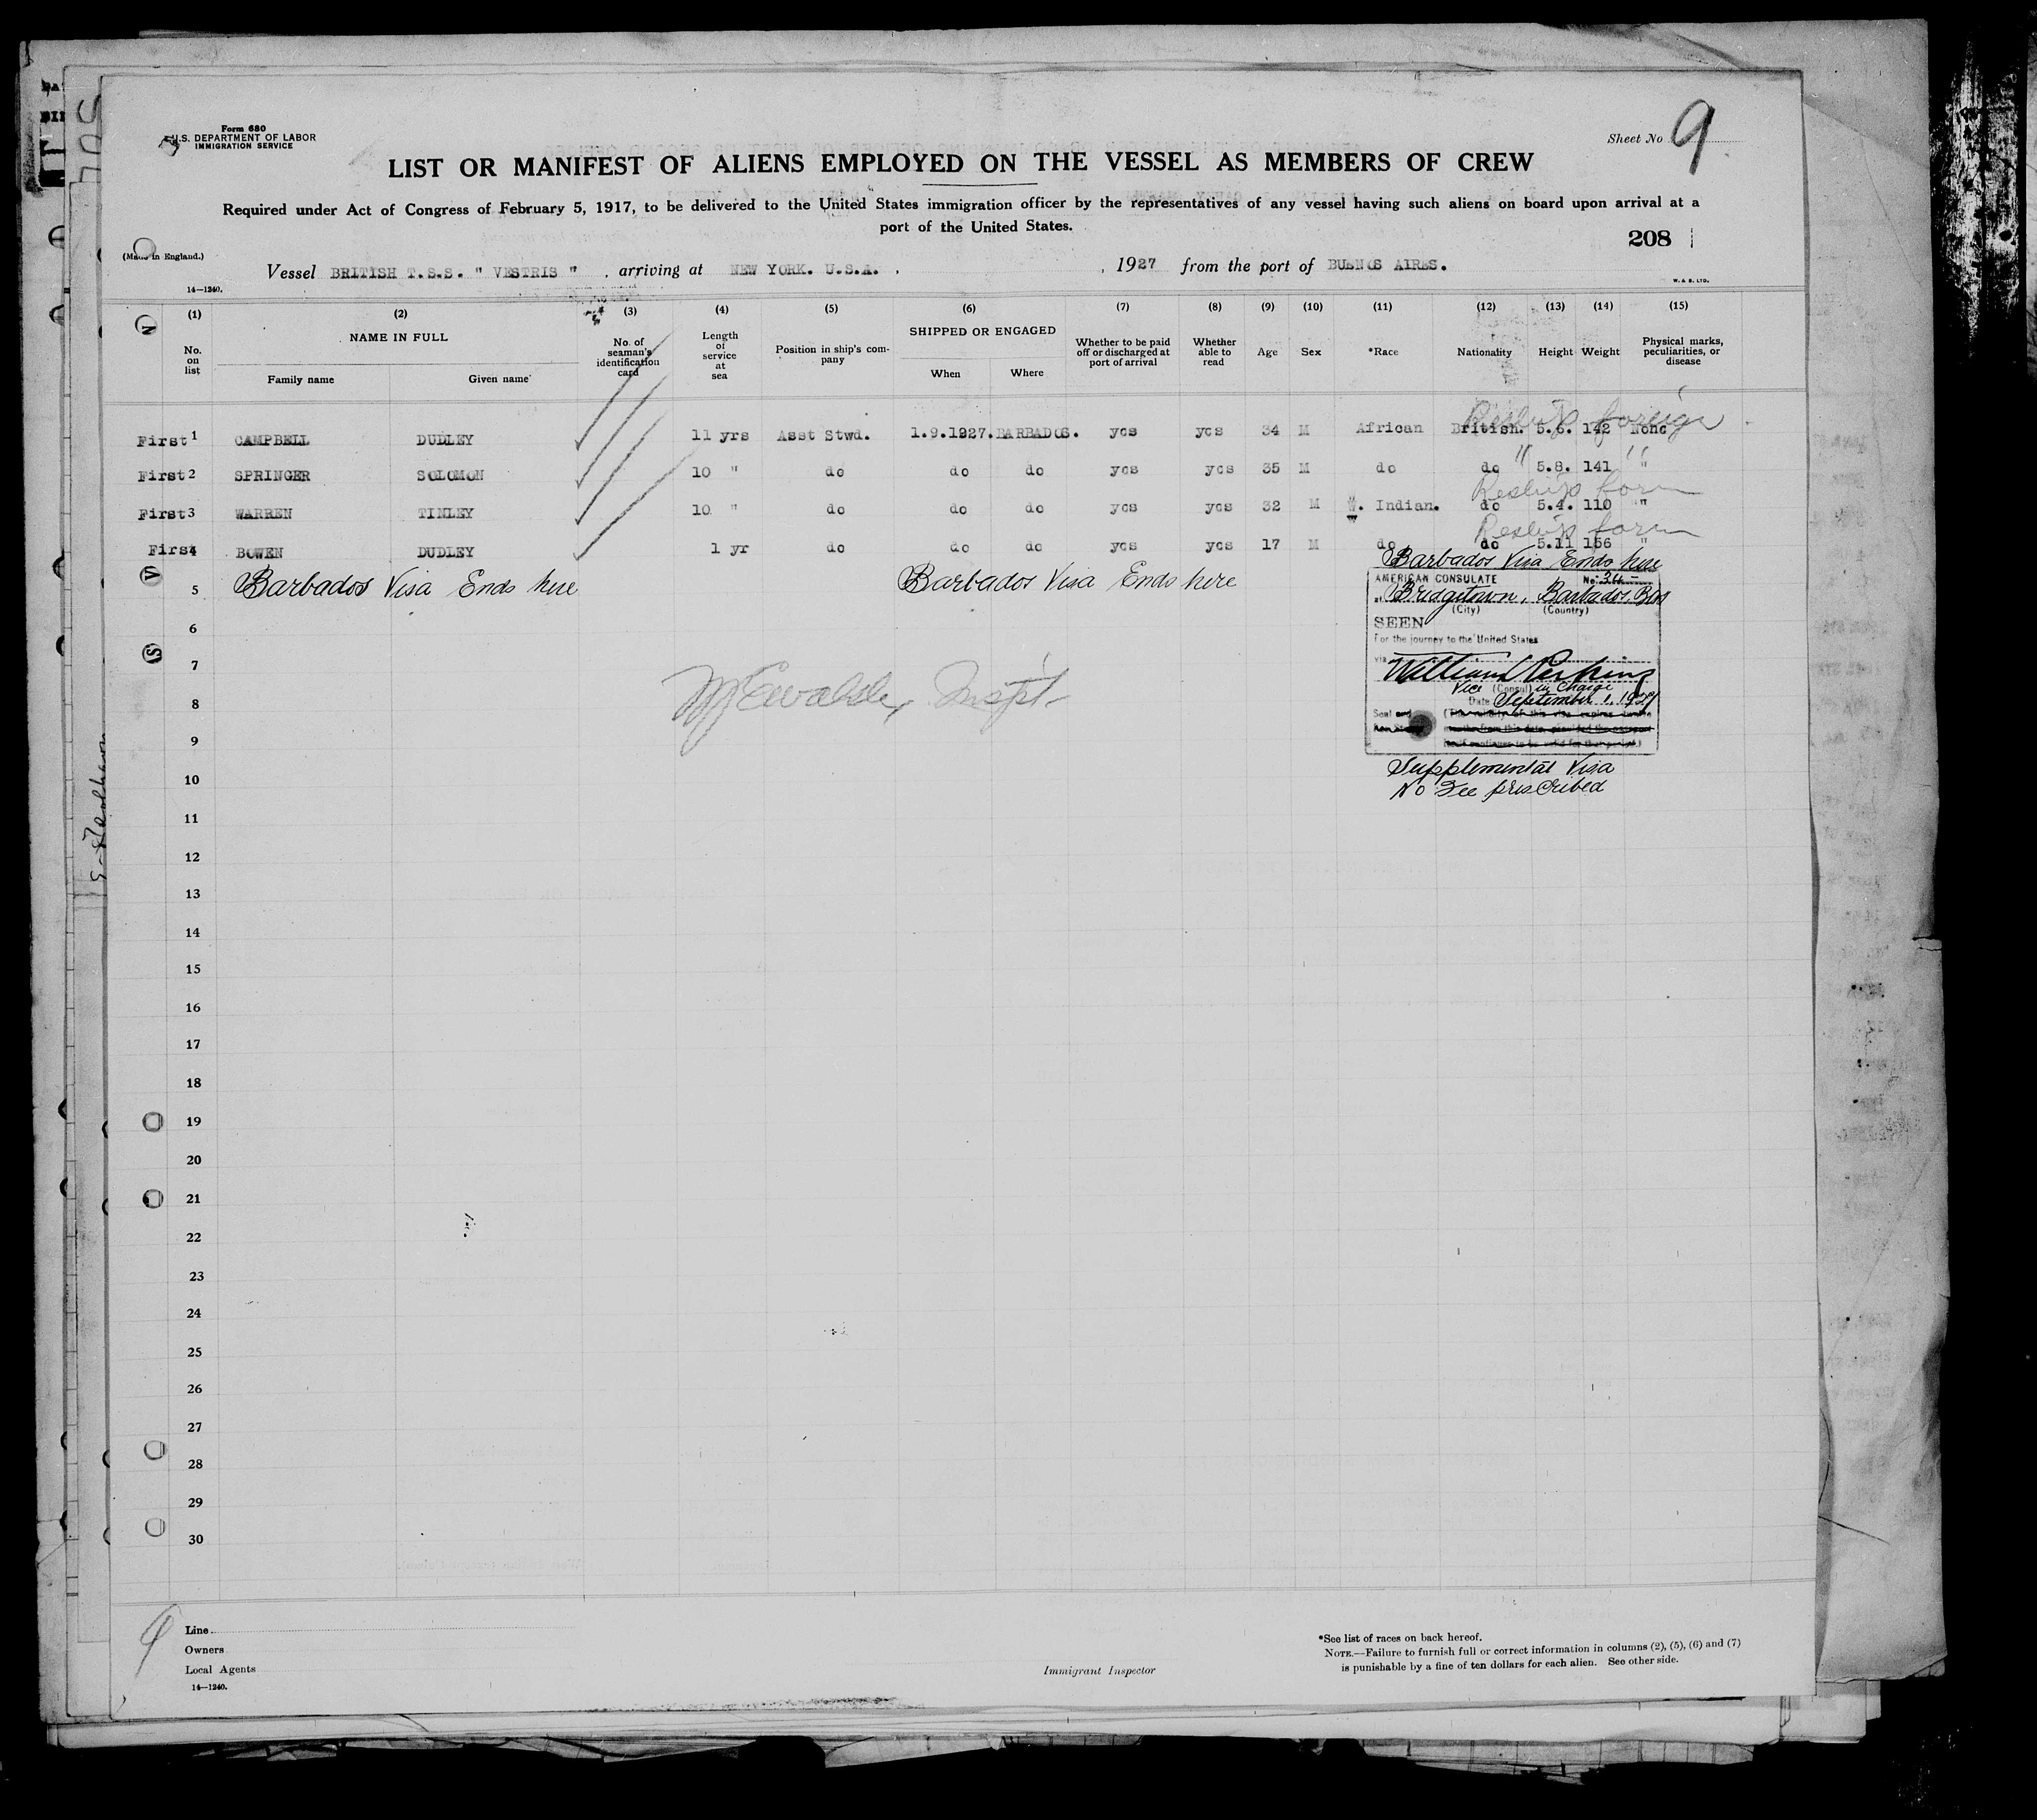 Form 680
U.S. DEPARTMENT OF LABOR
IMMIGRATION SERVICE
Sheet No 9
LIST OR MANIFEST OF ALIENS EMPLOYED ON THE VESSEL AS MEMBERS OF CREW
Required under Act of Congress of February 5, 1917, to be delivered to the United States immigration officer by the representatives of any vessel having such aliens on board upon arrival at a
port of the United States.
208
(Made in England.)
Vessel BRITISH T.S.S. " VESTRIS " , arriving at NEW YORK. U.S.A. , , 1927 from the port of BUENOS AIRES.
14—1240.
W. & S. LTD.
(1) (2) (3) (4) (5) (6) (7) (8) (9) (10) (11) (12) (13) (14) (15)
No. on list NAME IN FULL Family name Given name No. of seaman's identification card Length of service at sea Position in ship's company SHIPPED OR ENGAGED When Where Whether to be paid off or discharged at port of arrival Whether able to read Age Sex *Race Nationality Height Weight Physical marks, peculiarities, or disease
Reship foreign
First 1 CAMPBELL DUDLEY 11 yrs Asst Stwd. 1.9.1927. BARBADOS. yes yes 34 M African British. 5.6. 142 None
" "
First 2 SPRINGER SOLOMON 10 " do do do yes yes 35 M do do 5.8. 141 "
Reship forn
First 3 WARREN TINLEY 10 " do do do yes yes 32 M W. Indian. do 5.4. 110 "
Reship forn
First 4 BOWEN DUDLEY 1 yr do do do yes yes 17 M do do 5.11 156 "
Barbados Visa Ends here
5 Barbados Visa Ends here Barbados Visa Ends here
AMERICAN CONSULATE No.
at Bridgetown, Barbados, BWI
(City) (Country)
SEEN
For the journey to the United States
via
William Perkins
Vice (Consul) in Charge
Date September 1, 1927
Seal and
(The validity of this visa expires twelve
months from this date, provided the passport
itself continues to be valid for that period.)
Supplemental Visa
No Fee prescribed
6
7
Inspt
8
9
10
11
12
13
14
15
16
17
18
19
20
21
22
23
24
25
26
27
28
29
30
9
Line
Owners
Local Agents
14—1240.
Immigrant Inspector
*See list of races on back hereof.
NOTE.—Failure to furnish full or correct information in columns (2), (5), (6) and (7)
is punishable by a fine of ten dollars for each alien. See other side.